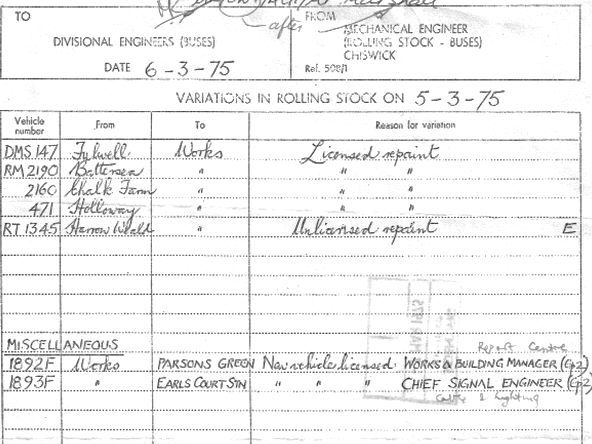 after
TO FROM
MECHANICAL ENGINEER
DIVISIONAL ENGINEERS (BUSES) (ROLLING STOCK - BUSES)
CHISWICK
DATE 6-3-75 Ref. 508/1
VARIATIONS IN ROLLING STOCK ON 5-3-75
Vehicle number From To Reason for variation
DMS 147 Fulwell Works Licensed repaint
RM 2190 Battersea " " "
2160 Chalk Farm " " "
471 Holloway " " "
RT 1345 Harrow Weald " Unlicensed repaint E
MISCELLANEOUS
Report Centre
1892F Works PARSONS GREEN New vehicle licensed WORKS & BUILDING MANAGER (Gp2)
1893F " EARLS COURT STN " " " CHIEF SIGNAL ENGINEER (Gp2)
Cable & Lighting